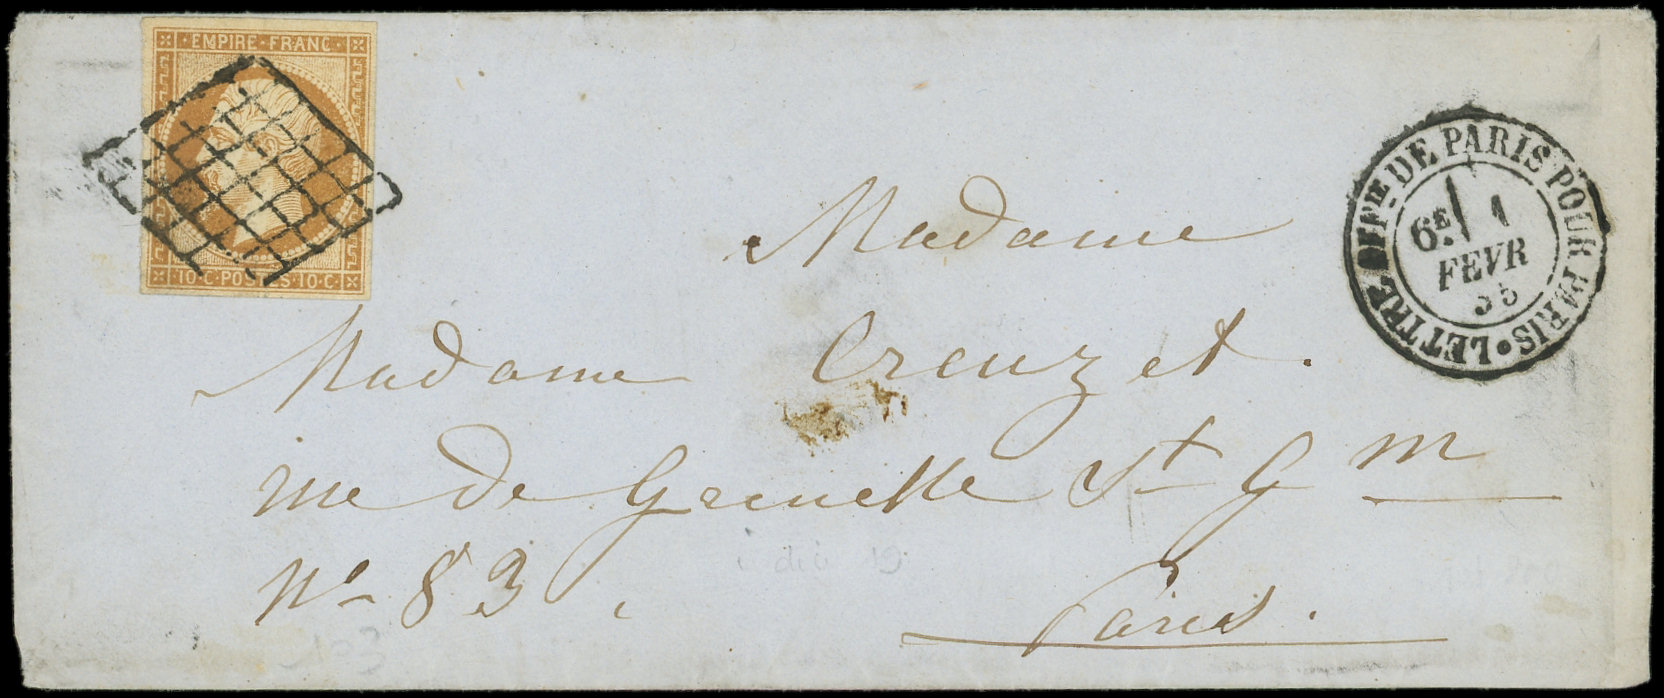 EMPIRE · FRANC ·
10 · C · POSTES · 10 · C ·
LETTRE OFFle DE PARIS POUR PARIS
6E 1
FEVR
55
Madame
Madame Creuzet.
rue de Grenelle St Gm
No 83.
Paris.